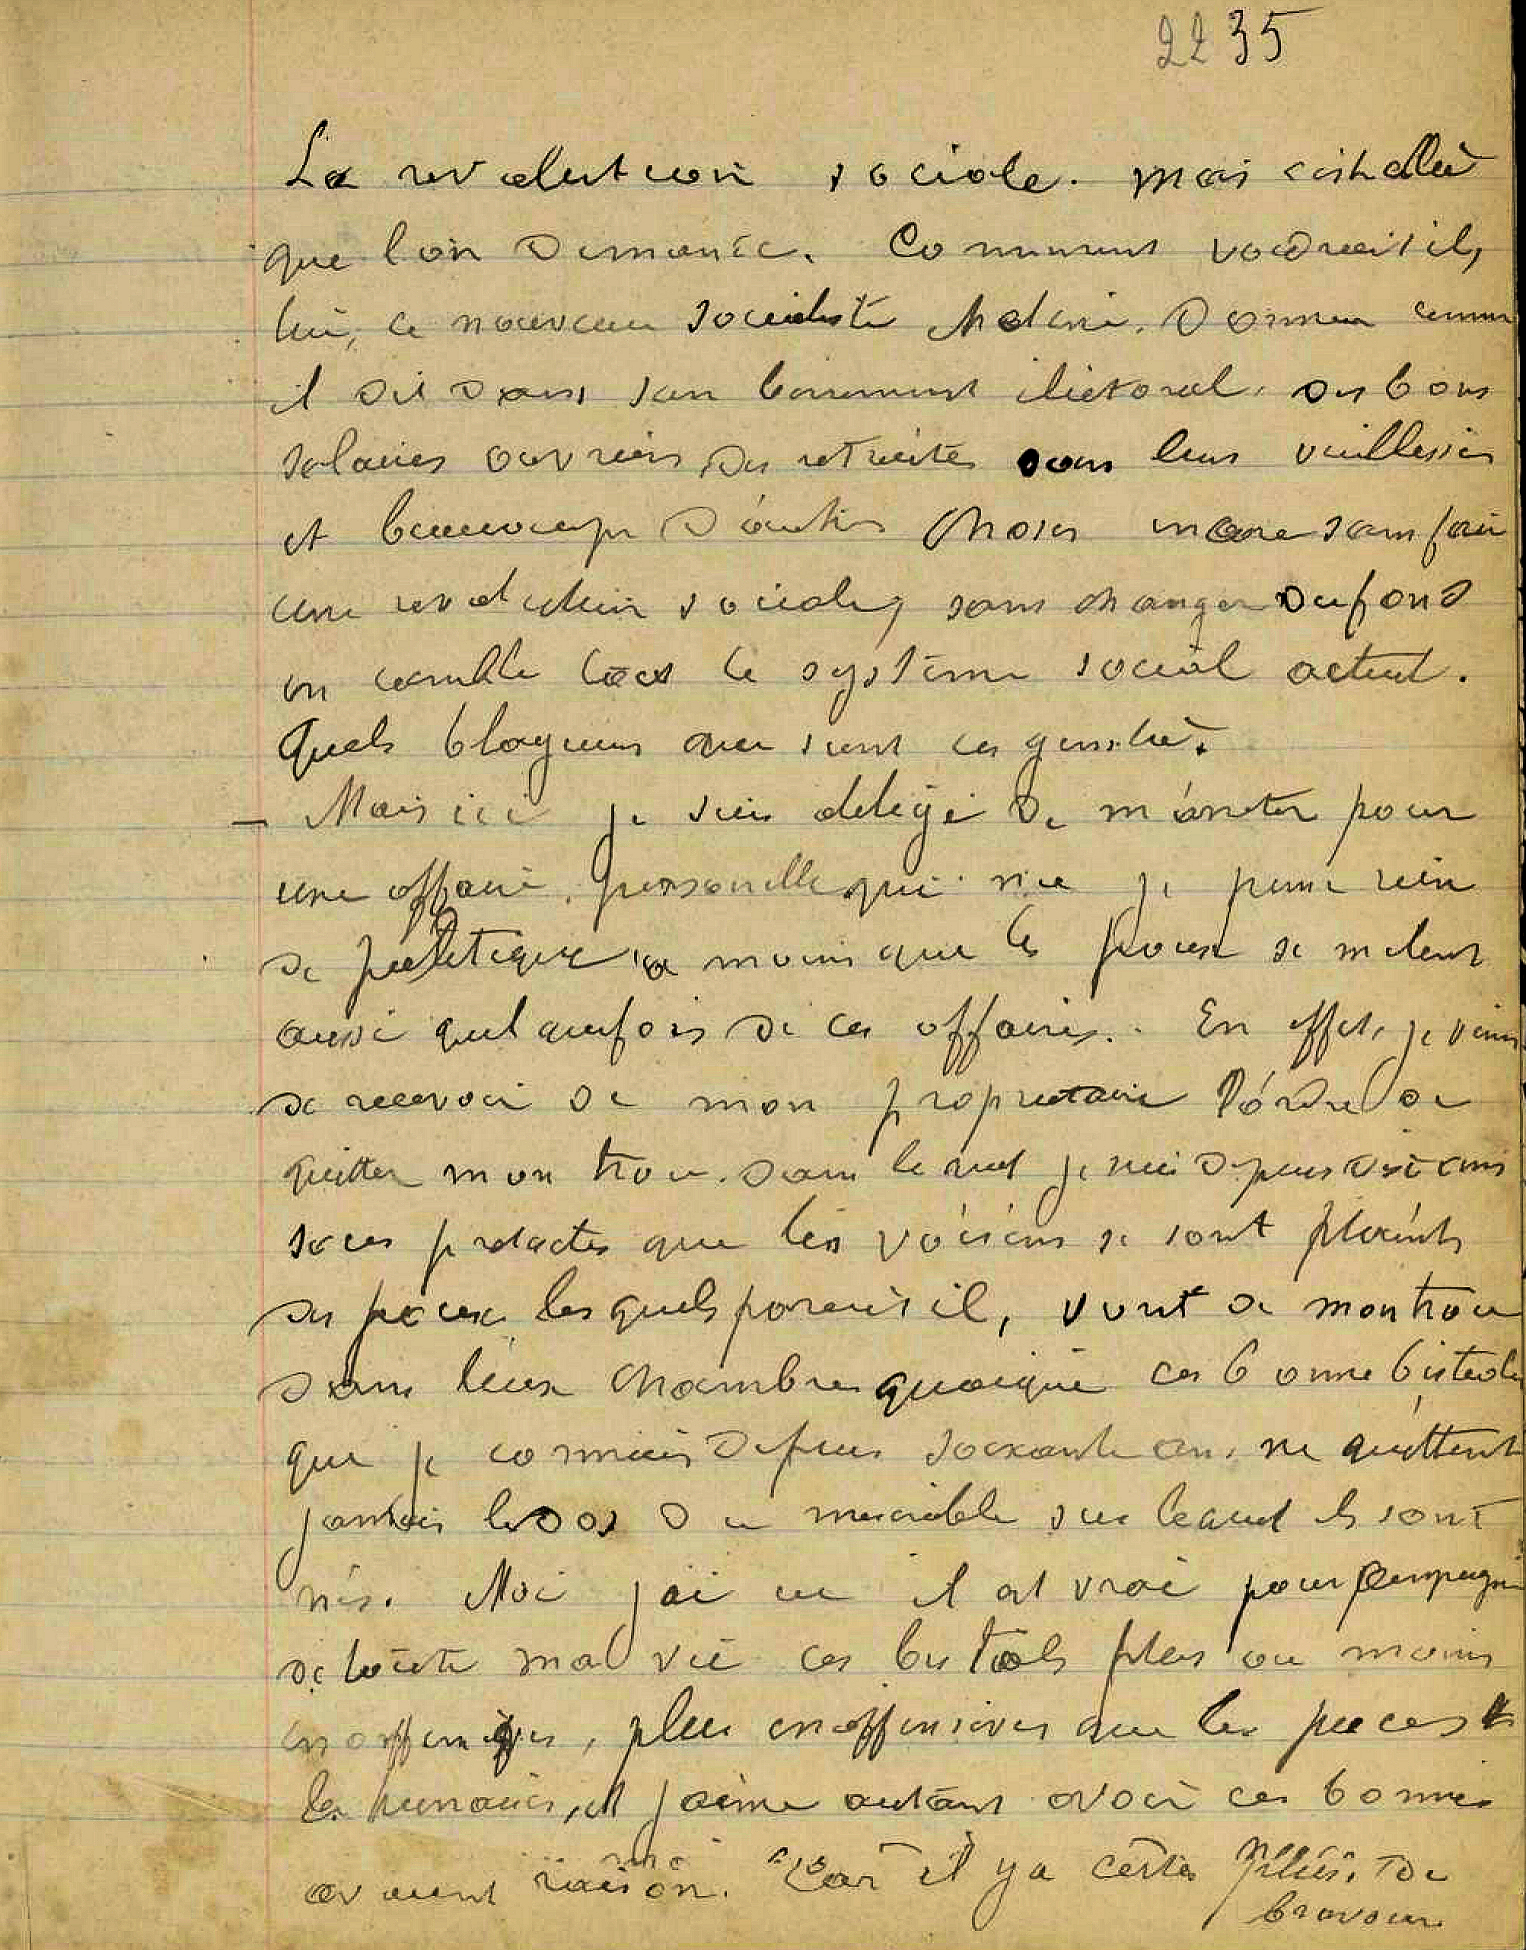 2235
La revolution sociale. mais c'est cela
que l'on demande. Comment voudrait il,
lui, ce nouveau socialiste Donner comme
il dit dans son boniment élictoral, des bons
salaires ouvriers des retraites dans leur vieillesses
et beaucoup d'autres choses encore sans faire
une revolution sociale, sans changer du fond
en comble tout le système social actuel.
Quels blagueurs que sont ces gens là.
— Mais ici je suis obligé de m'arrêter pour
une affaire personnelle qui n'a je pense rien
de politique, a moins que les poux se mêlent
aussi quelquefois de ces affaires. En effet, je viens
de recevoir de mon propriétaire l'ordre de
quitter mon trou dans lequel je suis depuis dix ans
sous prétexte que les voisins se sont plaints
des poux lesquels parait il, vont de mon trou
dans leurs chambres quoique ces bonne bistoles
que je connais depuis soixante ans, ne quittent
jamais le dos du miserable sur lequel ils sont
nés. Moi j'ai eu il est vrai pour compagnie
de toute ma vie ces bestiols plus ou moins
inoffensives, plus inoffensives que les puces et
les punaises, et j'aime autant avoir ces bonnes
raison. Car il y a certes plus de
bravoure